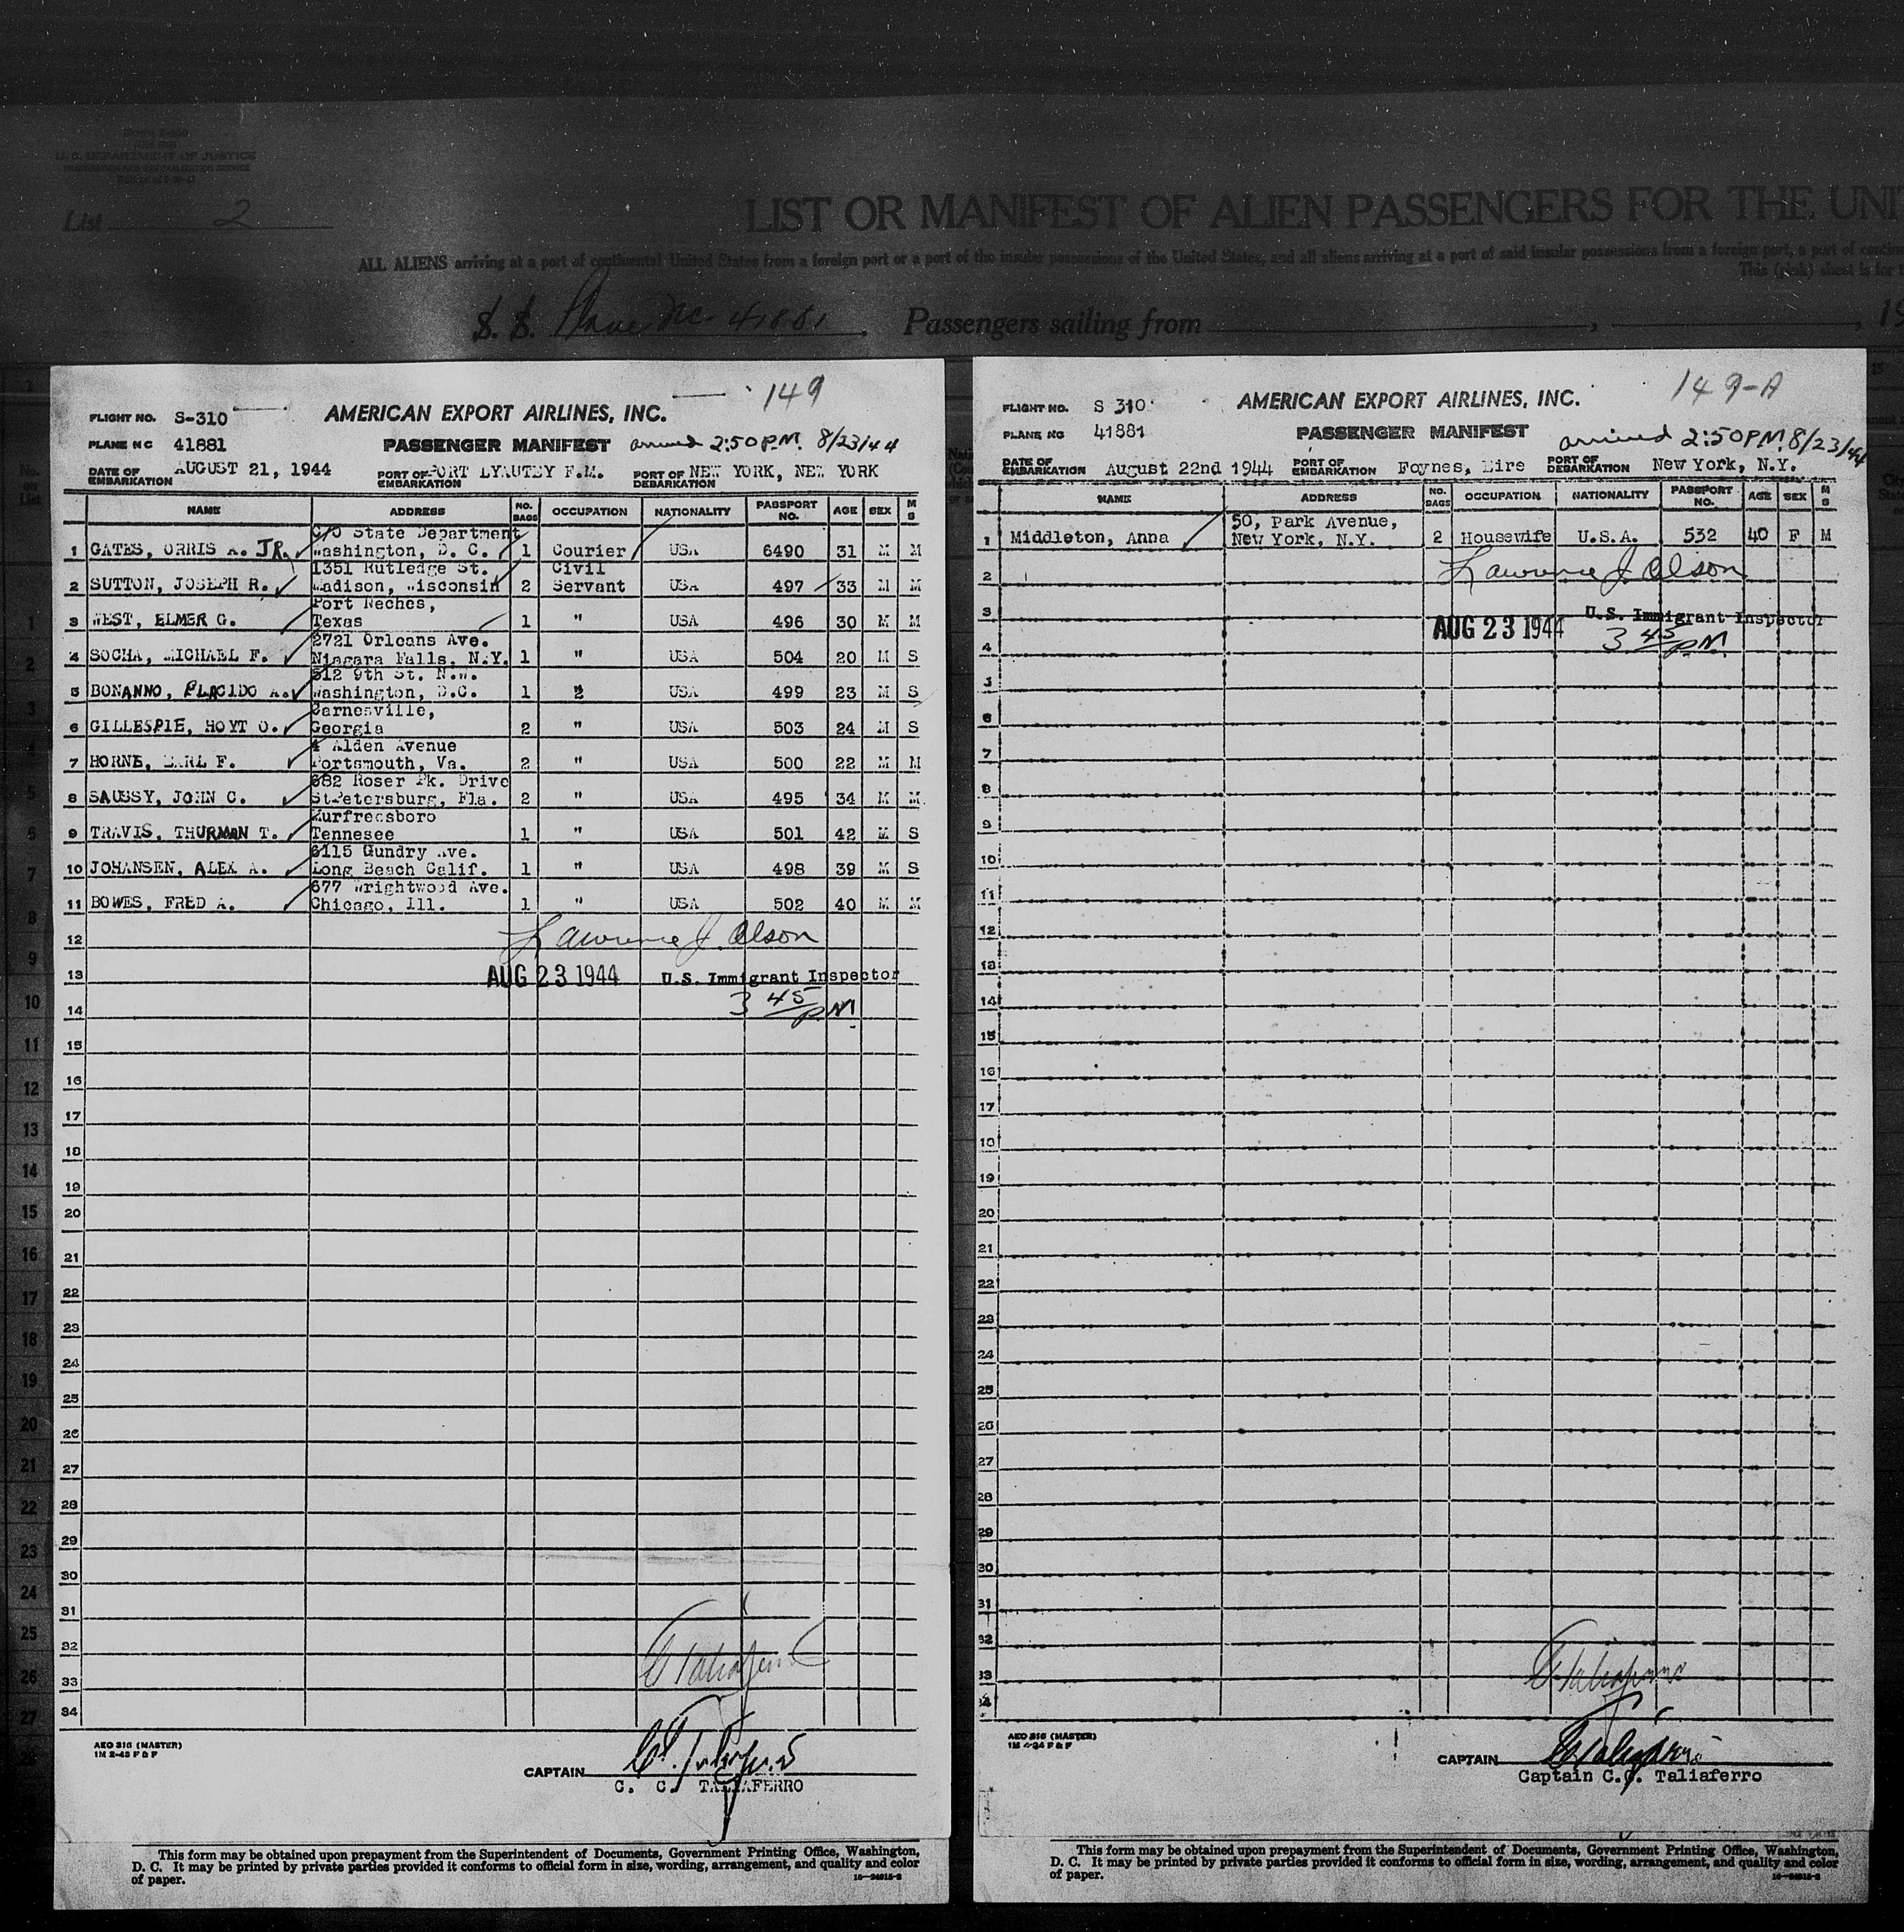 U. S. DEPARTMENT OF JUSTICE
List 2
LIST OR MANIFEST OF ALIEN PASSENGERS FOR THE UNI
ALL ALIENS arriving at a port of continental United States from a foreign port or a port of the insular possessions of the United States, and all aliens arriving at a port of said insular possessions from a foreign port, a port of contin
This (pink) sheet is for t
S. S. Plane NC 41881. Passengers sailing from , , 19
149
FLIGHT NO. S-310 AMERICAN EXPORT AIRLINES, INC.
PLANE NC 41881 PASSENGER MANIFEST arrived 2:50 P.M. 8/23/44
DATE OF EMBARKATION AUGUST 21, 1944 PORT OF EMBARKATION PORT LYAUTEY F.M. PORT OF DEBARKATION NEW YORK, NEW YORK
NAME ADDRESS NO. BAGS OCCUPATION NATIONALITY PASSPORT NO. AGE SEX M S
1 GATES, ORRIS A. JR. C/O State Department Washington, D. C. 1 Courier USA 6490 31 M M
2 SUTTON, JOSEPH R. 1351 Rutledge St. Madison, Wisconsin 2 Civil Servant USA 497 33 M M
3 WEST, ELMER G. Port Neches, Texas 1 " USA 496 30 M M
4 SOCHA, MICHAEL F. 2721 Orleans Ave. Niagara Falls, N.Y. 1 " USA 504 20 M S
5 BONANNO, PLACIDO A. 512 9th St. N.W. Washington, D.C. 1 " USA 499 23 M S
6 GILLESPIE, HOYT O. Carnesville, Georgia 2 " USA 503 24 M S
7 HORNE, EARL F. 4 Alden Avenue Portsmouth, Va. 2 " USA 500 22 M M
8 SAUSSY, JOHN C. 682 Roser Pk. Drive St Petersburg, Fla. 2 " USA 495 34 M M
9 TRAVIS, THURMAN T. Murfreesboro Tennesee 1 " USA 501 42 M S
10 JOHANSEN, ALEX A. 6115 Gundry Ave. Long Beach Calif. 1 " USA 498 39 M S
11 BOWES, FRED A. 677 Wrightwood Ave. Chicago, Ill. 1 " USA 502 40 M M
12 Lawrence J. Olson
13 AUG 23 1944 U.S. Immigrant Inspector
14 3 45 PM
15
16
17
18
19
20
21
22
23
24
25
26
27
28
29
30
31
32 C Taliaferro
33
34
AEO 316 (MASTER)
1M 2-43 F & F
CAPTAIN C. C. Taliaferro
C. C. TALIAFERRO
This form may be obtained upon prepayment from the Superintendent of Documents, Government Printing Office, Washington,
D. C. It may be printed by private parties provided it conforms to official form in size, wording, arrangement, and quality and color
of paper.
149-A
FLIGHT NO. S 310 AMERICAN EXPORT AIRLINES, INC.
PLANE NC 41881 PASSENGER MANIFEST arrived 2:50 P.M. 8/23/44
DATE OF EMBARKATION August 22nd 1944 PORT OF EMBARKATION Foynes, Eire PORT OF DEBARKATION New York, N.Y.
NAME ADDRESS NO. BAGS OCCUPATION NATIONALITY PASSPORT NO. AGE SEX M S
1 Middleton, Anna 50, Park Avenue, New York, N.Y. 2 Housewife U.S.A. 532 40 F M
2 Lawrence J. Olson
3 AUG 23 1944 U.S. Immigrant Inspector
4 3 45 PM
5
6
7
8
9
10
11
12
13
14
15
16
17
18
19
20
21
22
23
24
25
26
27
28
29
30
31
32
33 C Taliaferro
34
AEO 316 (MASTER)
CAPTAIN C. Taliaferro
Captain C.C. Taliaferro
This form may be obtained upon prepayment from the Superintendent of Documents, Government Printing Office, Washington,
D. C. It may be printed by private parties provided it conforms to official form in size, wording, arrangement, and quality and color
of paper.